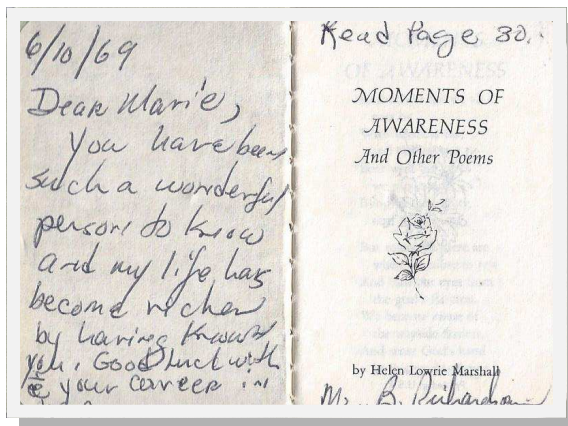 6/10/69
Dear Marie,
You have been
such a wonderful
person to know
and my life has
become richer
by having known
you. Good luck with
your career in
Read Page 30.
MOMENTS OF
AWARENESS
And Other Poems
by Helen Lowrie Marshall
B. Richardson